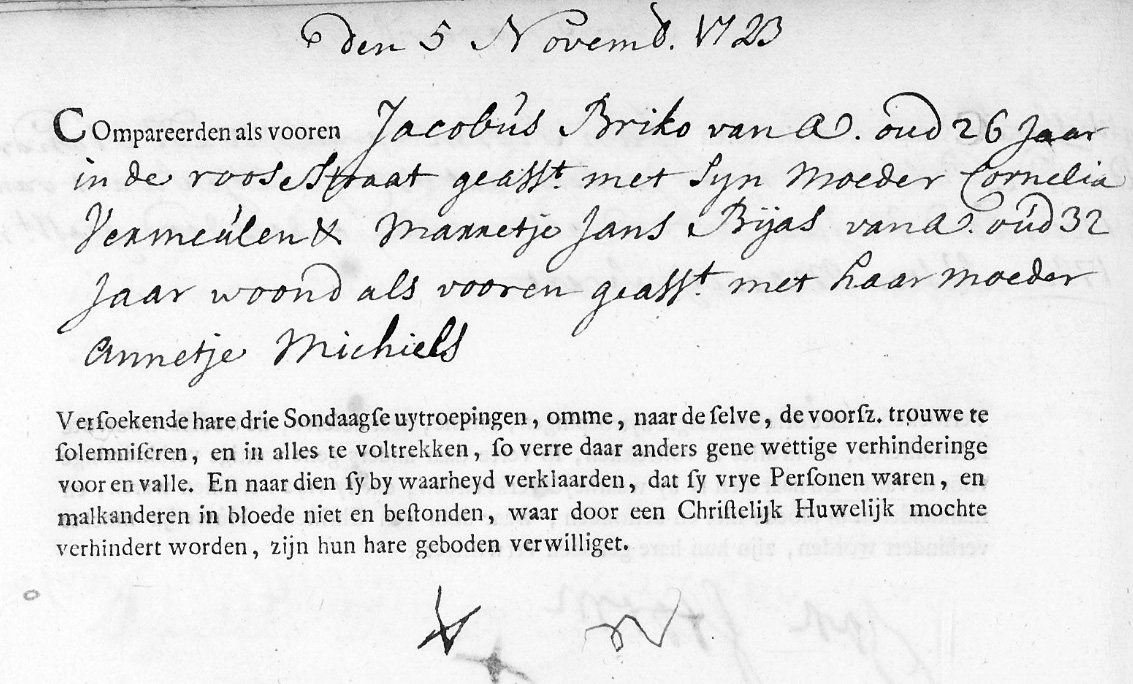 den 5 Novemb. 1723
COmpareerden als vooren Jacobus Briko van A. oud 26 Jaar
in de roose Straat geasst. met Syn Moeder Cornelia
Vermeulen & Marretje Jans Bijas van A. oud 32
Jaar woond als vooren geasst. met haar moeder
Annetje Michiels
Verſoekende hare drie Sondaagſe uytroepingen, omme, naar de ſelve, de voorſz. trouwe te
ſolemniſeren, en in alles te voltrekken, ſo verre daar anders gene wettige verhinderinge
voor en valle. En naar dien ſy by waarheyd verklaarden, dat ſy vrye Perſonen waren, en
malkanderen in bloede niet en beſtonden, waar door een Chriſtelijk Huwelijk mochte
verhindert worden, zijn hun hare geboden verwilliget.